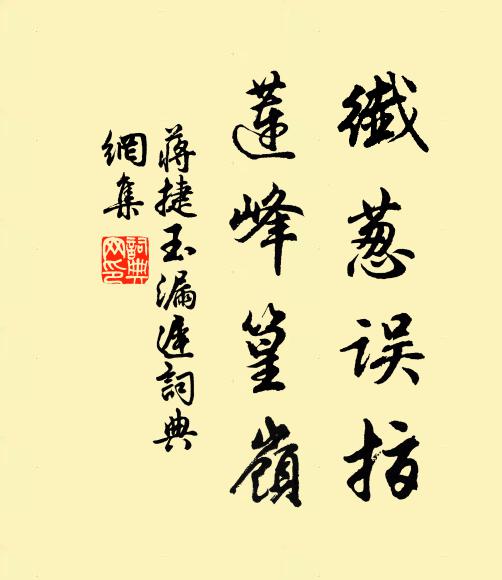 纖蔥误指
蓮峰篁嶺
蔣捷玉漏遲詞典
網集
詞典网印